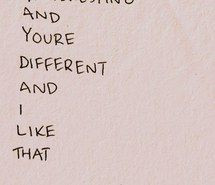 AND
YOURE
DIFFERENT
AND
I
LIKE
THAT